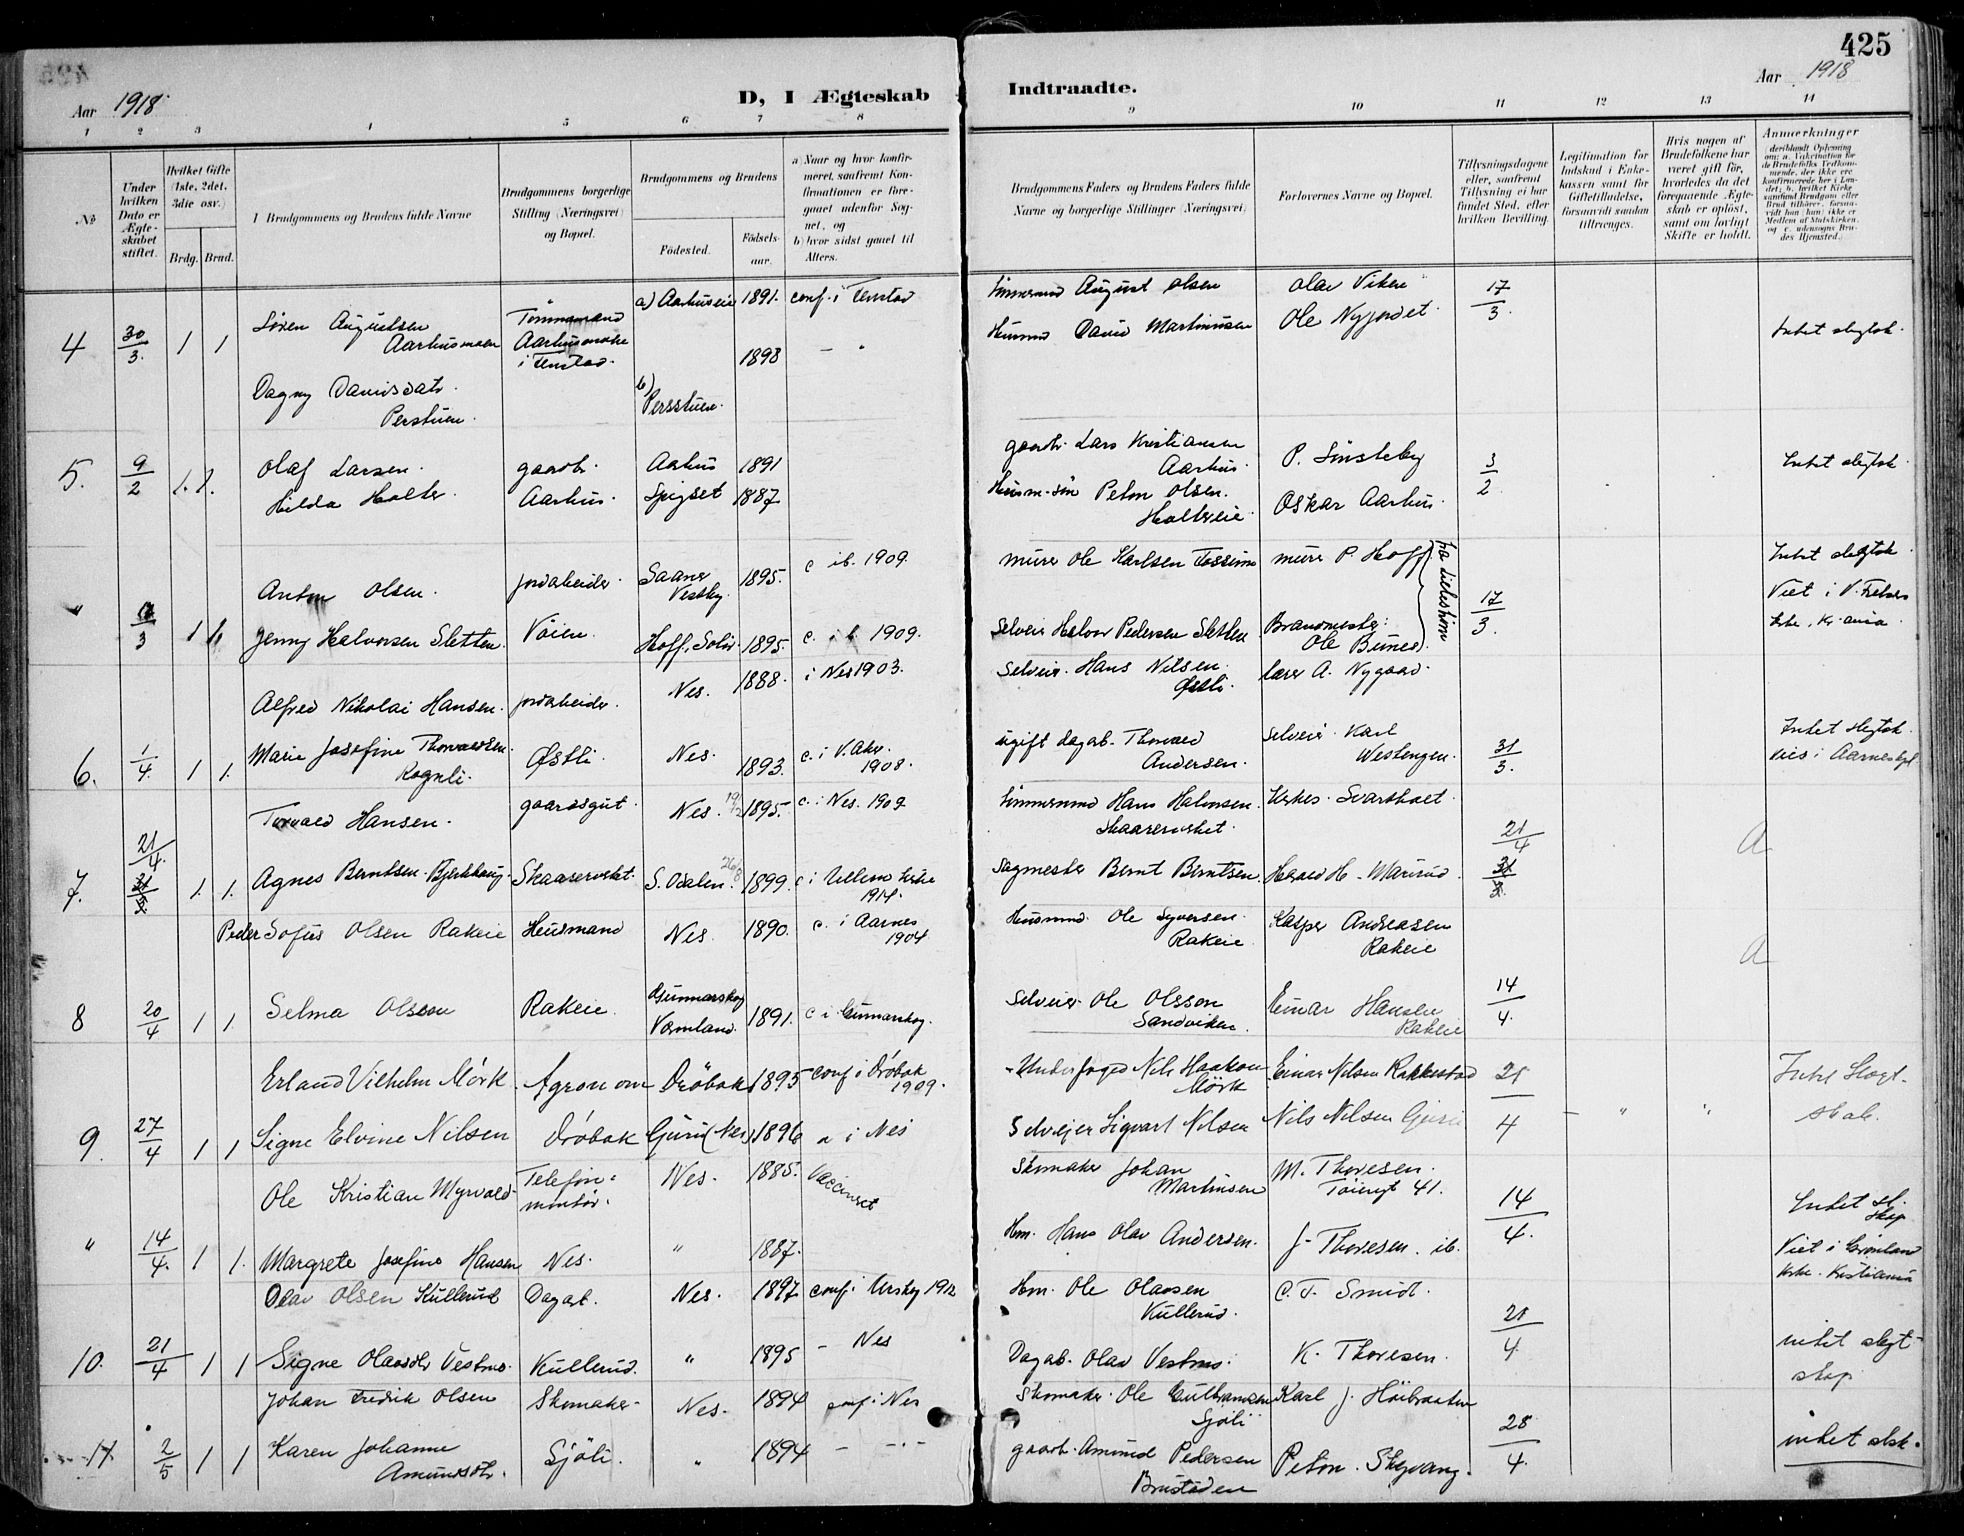 425
Aar 1918
D, I Ægteskab
Indtraadte.
Aar 1918
1 2 3 4 5 6 7 8 9 10 11 12 13 14
No
Under hvilken Dato er Ægteskabet stiftet.
Hvilket Gifte (1ste, 2det, 3die osv.)
Brdg. Brud.
Brudgommens og Brudens fulde Navne
Brudgommens borgerlige Stilling (Næringsvei) og Bopæl.
Brudgommens og Brudens
Fødested.
Fødselsaar.
a) Naar og hvor konfirmeret, saafremt Konfirmationen er foregaaet udenfor Sognet, og
b) hvor sidst gaaet til Alters.
Brudgommens Faders og Brudens Faders fulde Navne og borgerlige Stillinger (Næringsvei)
Forlovernes Navne og Bopæl.
Tillysningsdagene eller, saafremt Tillysning ei har fundet Sted, efter hvilken Bevilling.
Legitimation for Indskud i Enkekassen samt for Giftetilladelse, forsaavidt saadan tiltrænges.
Hvis nogen af Brudefolkene har været gift før, hvorledes da det foregaaende Ægteskab er opløst, samt om lovligt Skifte er holdt.
Anmærkninger
4 30/3. 1 1
Søren Augustsen Aarhusmoen
Tømmermand Aarhusmoen i Fenstad.
a) Aarhuseie 1891. conf. i Fenstad
Tømmermd August Olsen
Olav Viken
17/3.
Dagny Davidsdatr. Perstuen.
b) Persstuen. 1898
Husmd David Martinusen
Ole Nyjordet.
Intet slegtsk.
5. 9/2 1. 1.
Olaf Larsen.
gaardbr.
Aarhus 1891
gaardbr. Lars Kristiansen Aarhus.
P. Sinsteby
3/2
Intet slegtsk.
Hilda Holter.
Aarhus.
Spigset 1887
Husm-søn Peton Olsen. Holtereie
Oskar Aarhus.
" /3 1 1.
Anton Olsen.
jordarbeider.
Saaner Vestby. 1895.
c ib. 1909.
murer Ole Karlsen Fossum
murer P. Hoff
17/3.
Intet slegtsk.
Viet i V. Frelsers kirke, Kr.ania
Jenny Halvorsen Sletten.
Vøien.
Hoff, Solør. 1895.
c. ib 1909.
Selveier Halvor Pedersen Sletten
Brandmester Ole Bunes.
6. 1/4 1 1.
Alfred Nikolai Hansen.
jordarbeider.
Nes. 1888.
i Nes 1903.
Selveier. Hans Nilsen. Østli.
lærer A. Nygaard.
31/3.
Marie Josefine Thorvaldsen. Rognli.
Østli.
Nes. 1893.
c. i V. Aker. 1908.
ugift dagarb. Thorvald Andersen.
Selveier Karl Westengen.
Intet slegtsk.
viet i Aarneskpl.
7. 21/4. 31/3 1. 1.
Torvald Hansen.
gaardsgut.
Nes. 19/12 1895.
c. i Nes. 1909
Tømmermd Hans Halvorsen. Skaarervirket.
Kirkes. Svartholt.
21/4
31/3
A
Agnes Berntsen. Bjerkhaug.
Skaarervirket.
S. Odalen. 26/8 1899.
c i Ullern kirke 1914.
Sagmester Bernt Berntsen.
Harald H. Marirud.
8 20/4 1 1
Peder Sofus Olsen Rakeie
Husmand
Nes. 1890.
c. i Aarnes 1904.
Husmd. Ole Syversen. Rakeie
Kasper Andreasen Rakeie
14/4.
A
Selma Olsson
Rakeie.
Gunnarskog Værmland. 1891.
c i Gunnarskog.
Selveier Ole Olsson Sandviken.
Einar Hansen Rakeie
9. 27/4 1 1
Erland Vilhelm Mörk.
Agronom
Dröbak 1895
conf i Dröbak 1909.
Underfoged Nils Haakon Mörk
Einar Nilsen Rakkestad
21/4
Intet Slegtskab.
Signe Elvine Nilsen
Dröbak
Guru (Nes) 1896
" i Nes
Selveier Sigvart Nilsen
Nils Nilsen Guru
" 14/4. 1 1.
Ole Kristian Myrvold
Telefonmontør.
Nes. 1885.
Vaccineret
Skomaker Johan Martinsen
M. Thoresen. Tøiengt 41.
14/4.
Intet sl.skap
Viet i Grønland kirke. Kristiania
Margrete Josefine Hansen
Nes.
" 1887.
Hm. Hans Olav Andersen.
J. Thoresen. ib.
10. 21/4 1 1
Olav Olsen Kullerud
Dagarb.
Nes. 1897
conf. i Urskog 1912
Hm. Ole Olavsen Kullerud.
C. T. Smidt.
21/4
Signe Olavsdtr Vestmo.
Kullerud.
" 1895
- Nes
Dagarb. Olav Vestmo.
K. Thoresen.
intet slegtskap
11 2/5 1 1
Johan Fredrik Olsen
Skomaker
Nes. 1894
conf i Nes
Skomaker. Ole Gulbrandsen Sjøli
Karl J. Høibraaten
28/4.
Karen Johanne Amundsdtr.
Sjøli.
" 1894
gaarb. Amund Pedersen Brustaden
Peton. Skyvang.
intet slsk.